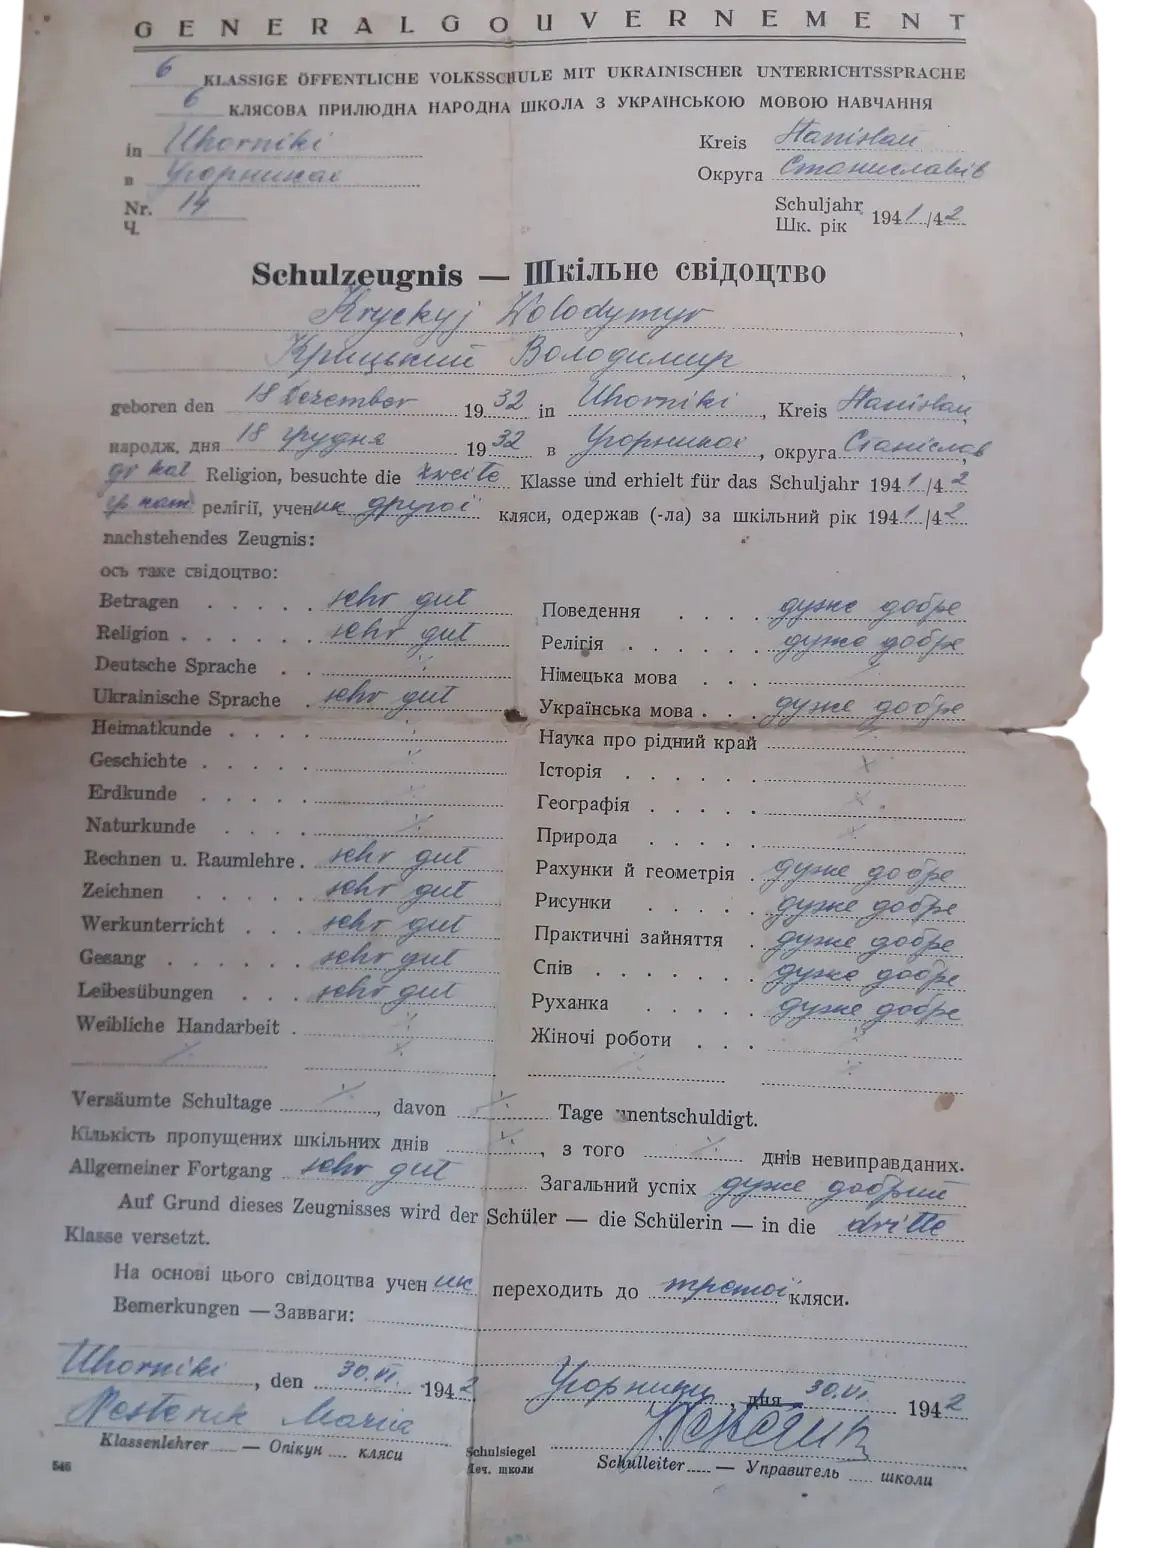 GENERALGOUVERNEMENT
6 KLASSIGE ÖFFENTLICHE VOLKSSCHULE MIT UKRAINISCHER UNTERRICHTSSPRACHE
6 КЛЯСОВА ПРИЛЮДНА НАРОДНА ШКОЛА З УКРАЇНСЬКОЮ МОВОЮ НАВЧАННЯ
in Uhorniki Kreis Stanislau
в Угорниках Округа Станиславів
Nr. 14 Schuljahr 1941/42
Ч. Шк. рік
Schulzeugnis — Шкільне свідоцтво
Kryckyj Wolodymyr,
Крицький Володимир,
geboren den 18 Dezember 1932 in Uhorniki, Kreis Stanislau,
народж. дня 18 грудня 1932 в Угорниках, округа Станіслав,
gr kat Religion, besuchte die zweite Klasse und erhielt für das Schuljahr 1941/42
гр. кат релігії, ученик другої кляси, одержав (-ла) за шкільний рік 1941/42
nachstehendes Zeugnis:
ось таке свідоцтво:
Betragen . . . . sehr gut Поведення . . . . дуже добре
Religion . . . . . sehr gut Релігія . . . . . . дуже добре
Deutsche Sprache . . ⁒ Німецька мова . . . ⁒
Ukrainische Sprache . sehr gut Українська мова . . . дуже добре
Heimatkunde . . . . ⁒ Наука про рідний край ⁒
Geschichte . . . . . ⁒ Історія . . . . . ⁒
Erdkunde . . . . . ⁒ Географія . . . . ⁒
Naturkunde . . . . ⁒ Природа . . . . . ⁒
Rechnen u. Raumlehre . sehr gut Рахунки й геометрія . дуже добре
Zeichnen . . . . . sehr gut Рисунки . . . . . дуже добре
Werkunterricht . . . sehr gut Практичні зайняття . дуже добре
Gesang . . . . . . sehr gut Спів . . . . . . дуже добре
Leibesübungen . . . sehr gut Руханка . . . . . дуже добре
Weibliche Handarbeit . ⁒ Жіночі роботи . . . ⁒
⁒ ⁒ ⁒ ⁒
Versäumte Schultage ⁒, davon ⁒ Tage unentschuldigt.
Кількість пропущених шкільних днів ⁒, з того ⁒ днів невиправданих.
Allgemeiner Fortgang sehr gut Загальний успіх дуже добрий
Auf Grund dieses Zeugnisses wird der Schüler — die Schülerin — in die dritte
Klasse versetzt.
На основі цього свідоцтва ученик переходить до третої кляси.
Bemerkungen — Завваги:
Uhorniki, den 30.VI. 1942 Угорники, дня 30.VI. 1942
Nesteruk Maria
Klassenlehrer — Опікун кляси Schulsiegel Schulleiter — Управитель школи
Печ. школи
546